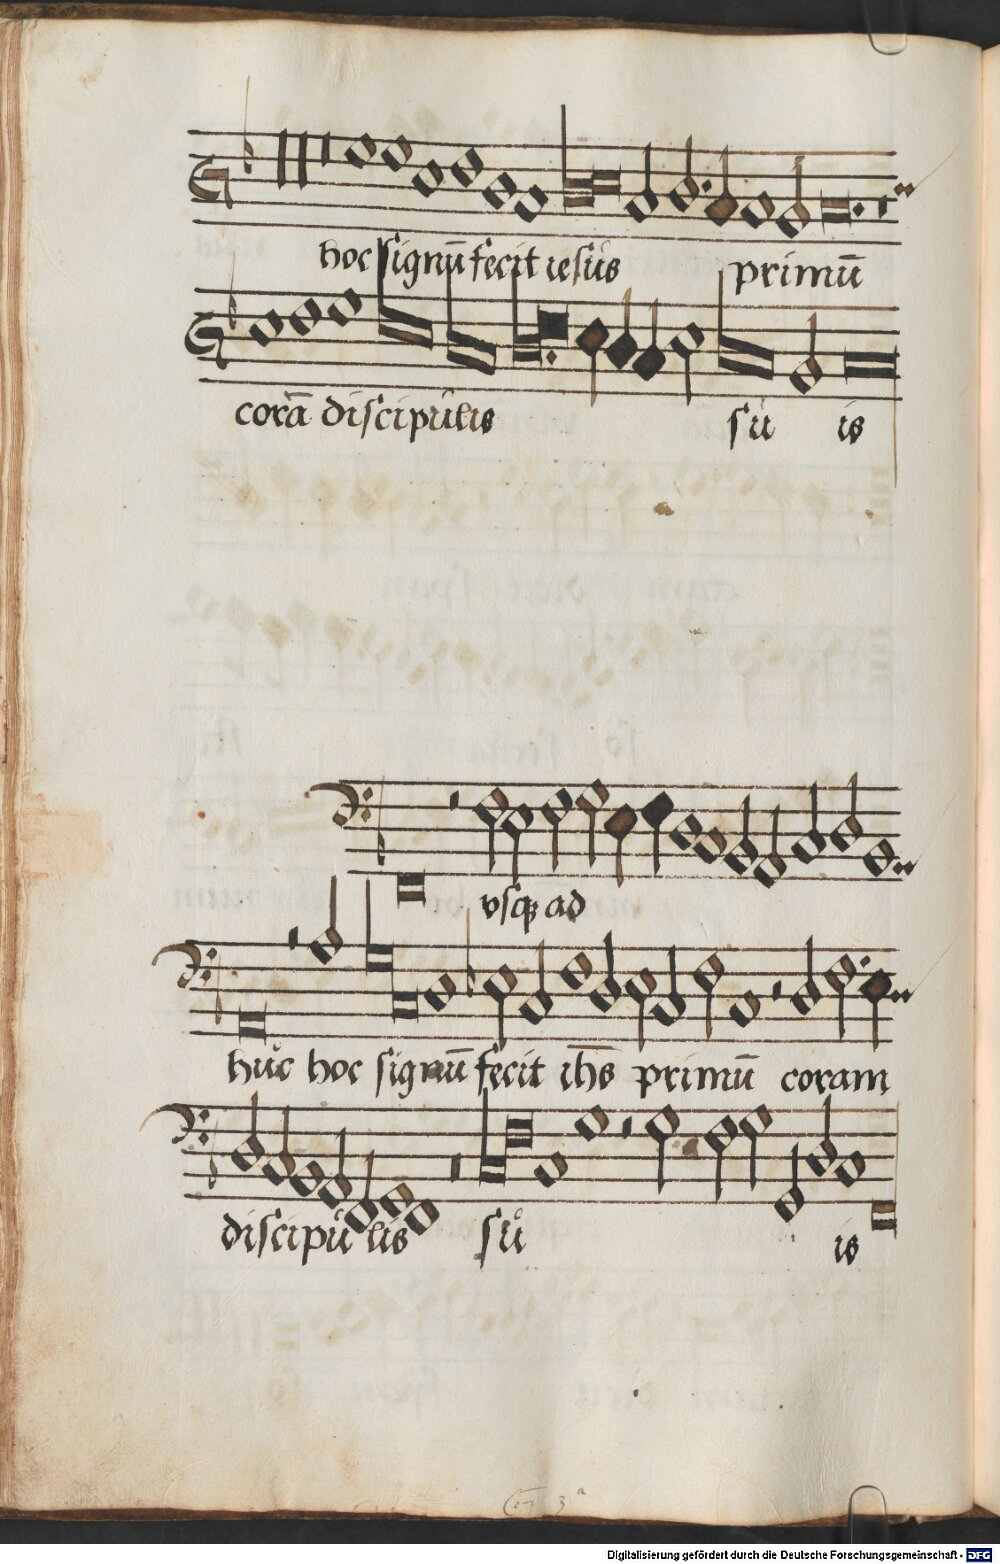 hoc signū fecit iesus primū
corā discipulis su is
vsq ad
huc hoc signū fecit ih̄s primū coram
discipu lis su is
3ª
Digitalisierung gefördert durch die Deutsche Forschungsgemeinschaft - DFG